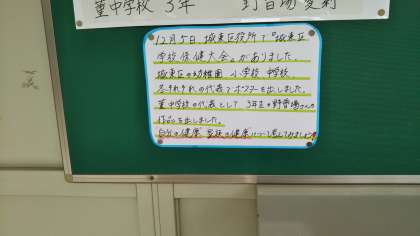 菫中学校 3年 野音場愛莉
12月5日、城東区役所で『城東区
学校保健大会』がありました。
城東区の幼稚園 小学校 中学校
それぞれの代表でポスターを出しました。
菫中学校の代表として 3年生の野音場さんが
作品を出しました。
自分の健康、家族の健康について考えてみましょう